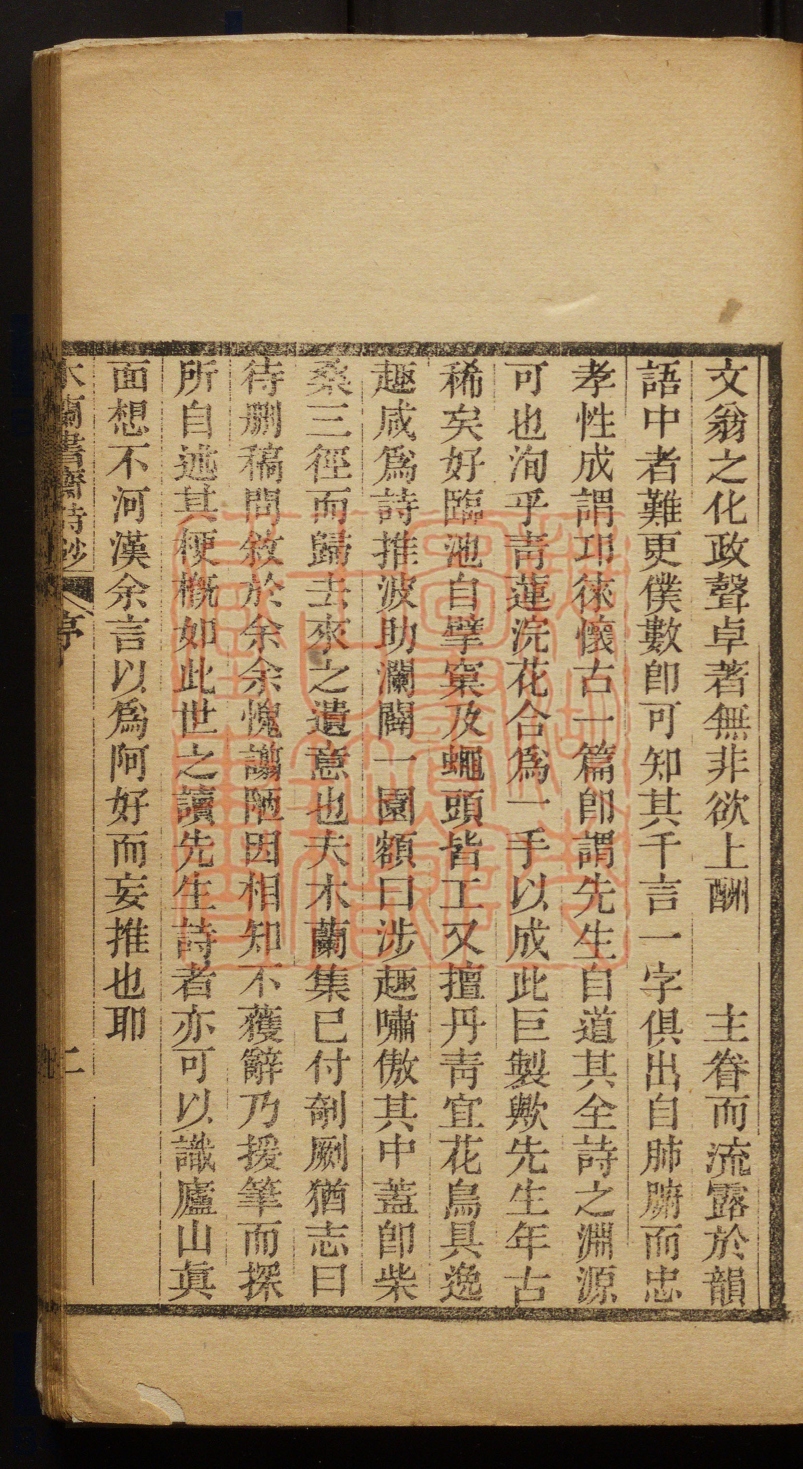 文翁之化政聲卓著無非欲上酬　主眷而流露於韻
語中者難更僕數卽可知其千言一字俱出自肺腑而忠
孝性成謂邛徠懷古一篇卽謂先生自道其全詩之淵源
可也洵乎靑蓮浣花合爲一手以成此巨製歟先生年古
稀矣好臨池自擘窠及蠅頭皆工又擅丹靑宜花鳥具逸
趣咸爲詩推波助瀾闢一園額曰涉趣嘯傲其中蓋卽柴
桑三徑而歸去來之遺意也夫木蘭集已付剞劂猶志曰
待刪稿問敘於余余愧譾陋因相知不獲辭乃援筆而探
所自述其梗槪如此世之讀先生詩者亦可以識廬山眞
面想不河漢余言以爲阿好而妄推也耶
木蘭書齋詩鈔
序
二